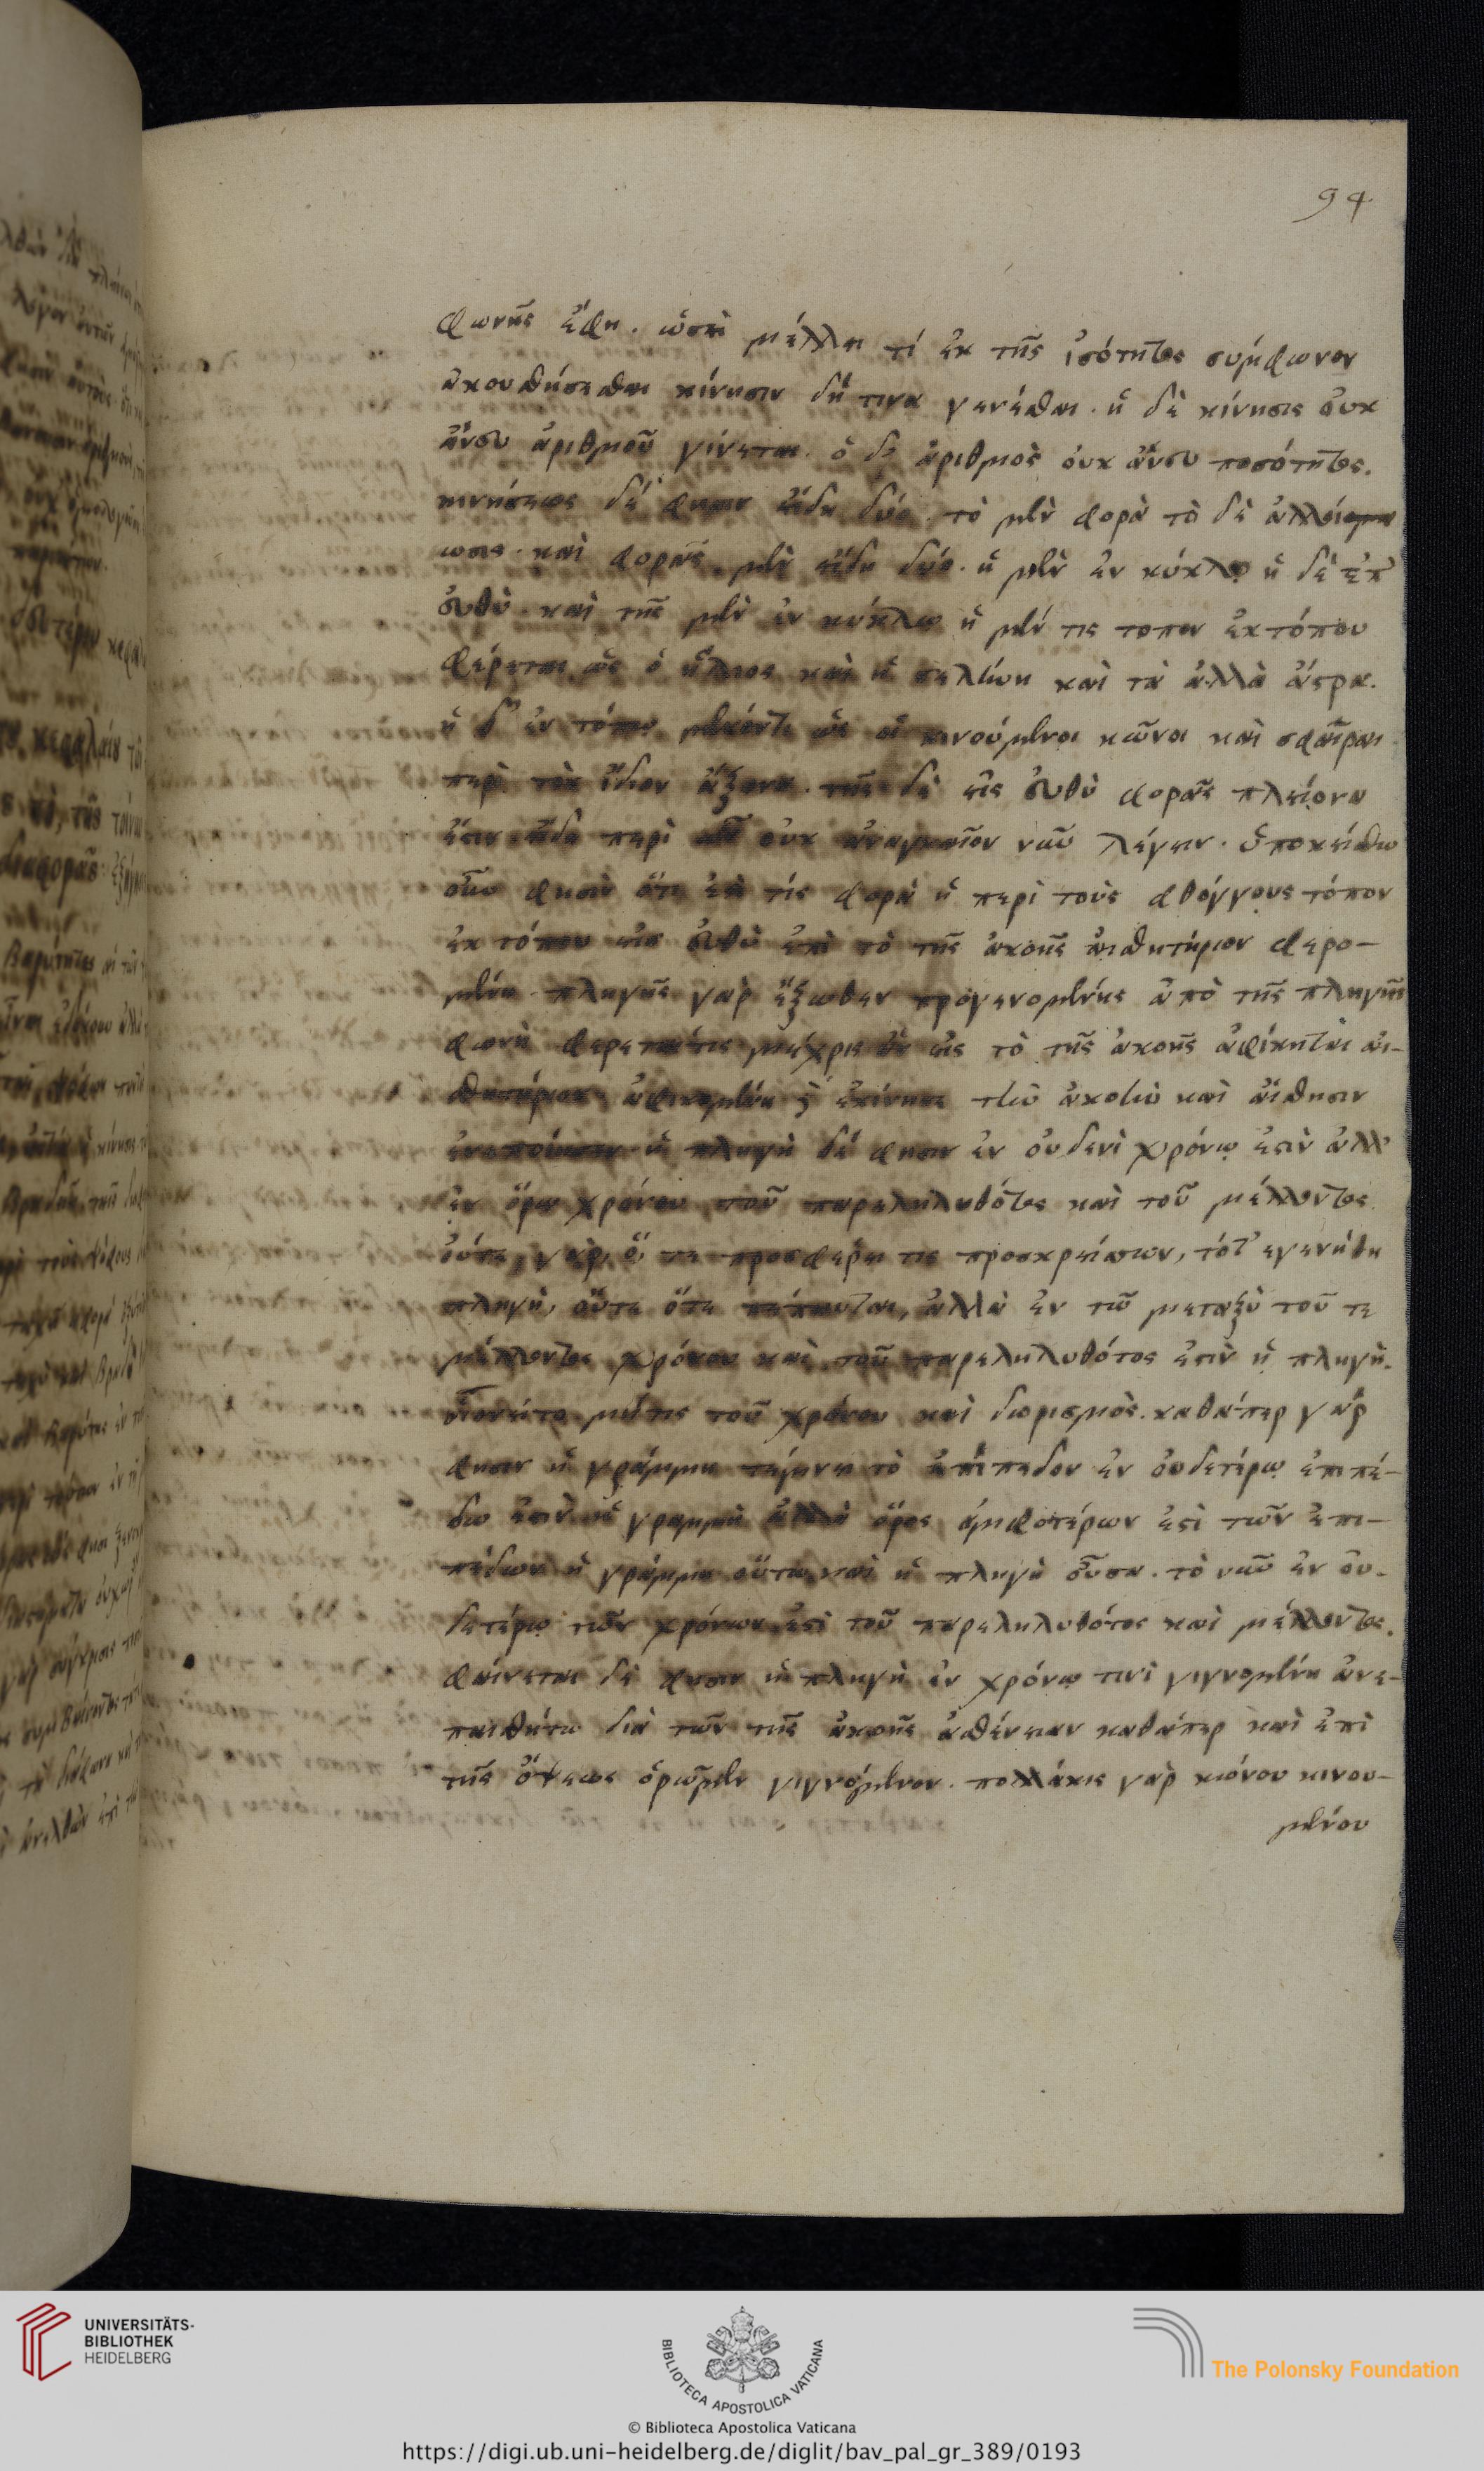 94
φωνῆς ἔφη. ὥστε μέλλει τί ἐκ τῆς ἰσότητος σύμφωνον
ἀκουσθήσεσθαι κίνησιν δή τινα γενέσθαι. ἡ δὲ κίνησις οὐκ
ἄνευ ἀριθμοῦ γίνεται. ὁ δὲ ἀριθμὸς οὐκ ἄνευ ποσότητος.
κινήσεως δέ φησιν εἴδη δύο. τὸ μὲν φορὰ τὸ δὲ ἀλλοί
ωσις. καὶ φορᾶς μὲν εἴδη δύο. ἡ μὲν ἐν κύκλῳ ἡ δὲ ἐπ᾽
εὐθὺ. καὶ τῆς μὲν ἐν κύκλῳ ἡ μέν τις τοπον ἐκ τόπου
φέρεται ὡς ὁ ἥλιος καὶ ἡ σελήνη καὶ τὰ ἀλλὰ ἄστρα.
ἡ δ᾽ ἐν τόπῳ μένοντι ὡς οἱ κινούμενοι κῶνοι καὶ σφαῖραι
περὶ τὸν ἴδιον ἄξονα. τῆς δὲ εἰς εὐθὺ φορᾶς πλείονα
ἐστιν εἴδη περὶ οὐκ ἀναγκαῖον νῦν λέγειν. ὑποκείσθω
οὖν φησὶν ὅτι ἐστὶ τίς φορὰ ἡ περὶ τοὺς φθόγγους τόπον
ἐκ τόπου εἰς εὐθὺ ἐπὶ τὸ τῆς ἀκοῆς αἰσθητήριον φερο-
μένη. πληγῆς γὰρ ἔξωθεν προγενομένης ἀπὸ τῆς πληγῆς
φωνὴ φερεται τις μέχρις ἂν εἰς τὸ τῆς ἀκοῆς ἀφίκηται αἰ-
σθητήριον ἀφικομένη ἐκίνησε τὴν ἀκοὴν καὶ αἴσθησιν
ἐνεποίησεν ἡ πληγὴ δέ φησιν ἐν οὐδενὶ χρόνῳ ἐστὶν ἀλλ᾽
ἐν ὅρῳ χρόνου τοῦ παρεληλυθότος καὶ τοῦ μέλλοντος.
οὔτε γὰρ, ὅτε προσφέρει τις προσκρείσιων, τότ᾽ εγενήθη
πληγὴ, οὔτε ὅτε πέπαυται, ἀλλὰ ἐν τῷ μεταξὺ τοῦ τε
μέλλοντος χρόνου καὶ τοῦ παρεληλυθότος ἐστὶν ἡ πληγὴ.
τοῦ χρόνου καὶ διορισμὸς. καθάπερ γάρ
φησιν ἡ γράμμη τέμνει τὸ ἐπίπεδον ἐν οὐδετέρῳ ἐπιπέ-
δῳ ἐστὶν ἡ γραμμὴ ἀλλὰ ὅρος ἀμφοτέρων ἐστὶ τῶν ἐπι-
πέδων ἡ γράμμη οὕτω καὶ ἡ πληγὴ οὖσα. τὸ νῦν ἐν οὐ-
δετέρῳ τῶν χρόνων ἐστὶ τοῦ παρεληλυθότος καὶ μέλλοντος.
φαίνεται δὲ φησιν ἡ πληγὴ ἐν χρόνῳ τινὶ γιγνομένη ἀνε-
παισθήτω διὰ τῶν τῆς ἀκοῆς ἀσθένειαν καθάπερ καὶ ἐπὶ
τῆς ὄψεως ὁρῶμεν γιγνόμενον. πολλάκις γὰρ κώνου κινου-
μένου
UNIVERSITÄTS-
BIBLIOTHEK
HEIDELBERG
BIBLIOTECA APOSTOLICA VATICANA
The Polonsky Foundation
© Biblioteca Apostolica Vaticana
https://digi.ub.uni-heidelberg.de/diglit/bav_pal_gr_389/0193